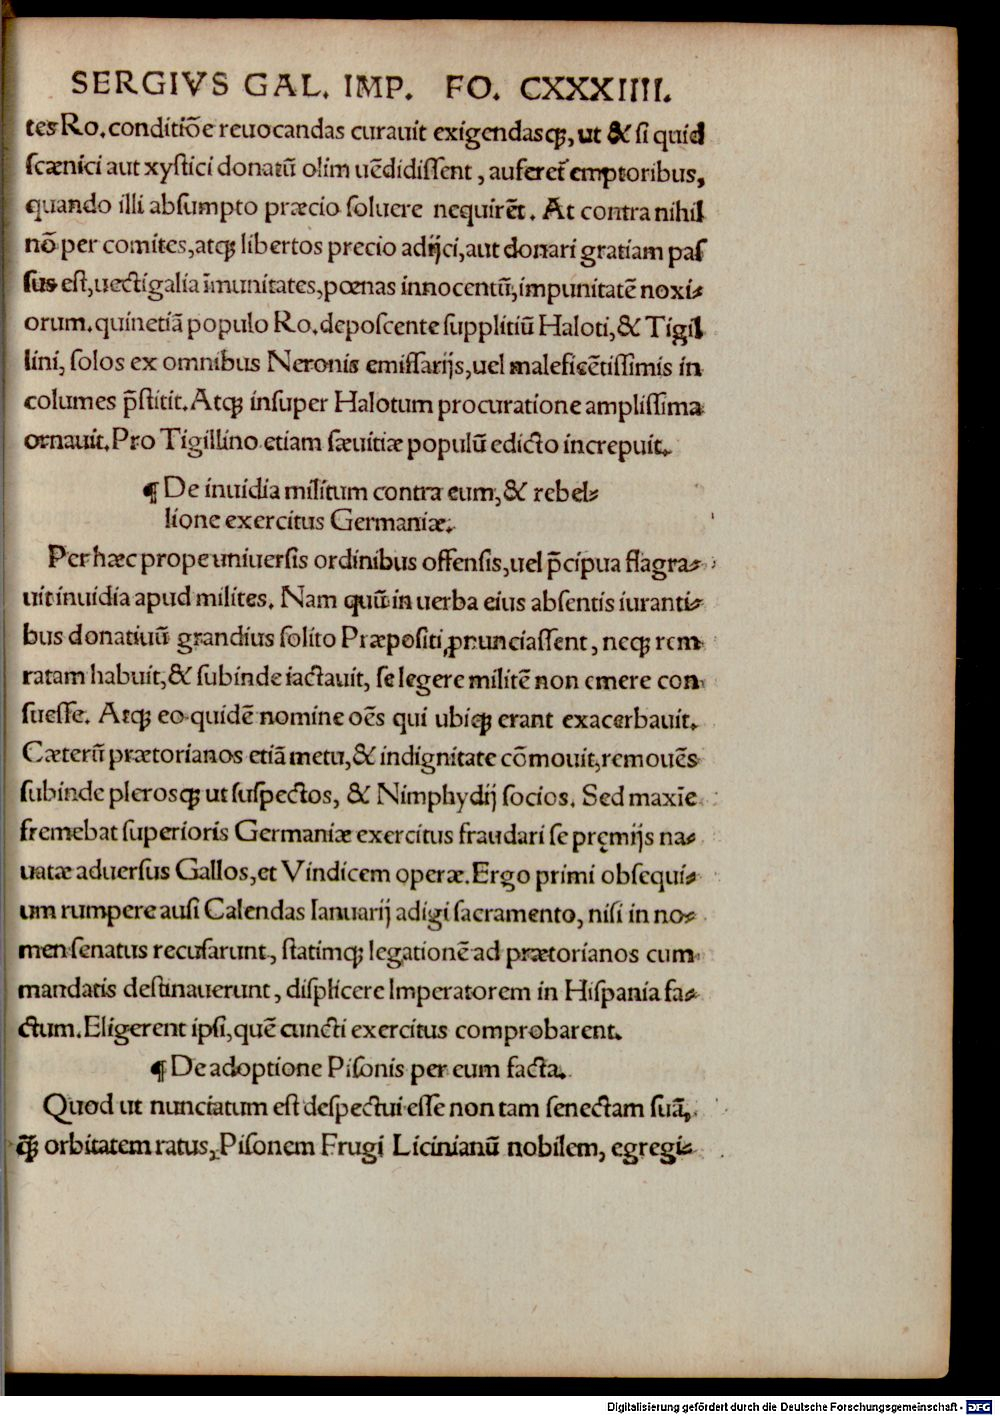 SERGIVS GAL. IMP. FO. CXXXIIII.
tes Ro. conditiõe reuocandas curauit exigendasq;, ut & si quid
scænici aut xystici donatũ olim uẽdidissent, auferet̃ emptoribus,
quando illi absumpto præcio soluere nequirẽt. At contra nihil
nõ per comites, atq; libertos precio adijci, aut donari gratiam pas
sus est, uectigalia ĩmunitates, pœnas innocentũ, impunitatẽ noxi⸗
orum. quinetiã populo Ro. deposcente supplitiũ Haloti, & Tigil
lini, solos ex omnibus Neronis emissarijs, uel maleficẽtissimis in
columes p̃stitit. Atq; insuper Halotum procuratione amplissima
ornauit. Pro Tigillino etiam sæuitiæ populũ edicto increpuit.
¶ De inuidia militum contra eum, & rebel⸗
lione exercitus Germaniæ.
Per hæc prope uniuersis ordinibus offensis, uel p̃cipua flagra⸗
uit inuidia apud milites. Nam quũ in uerba eius absentis iuranti⸗
bus donatiuũ grandius solito Præpositi ꝓnunciassent, neq; rem
ratam habuit, & subinde iactauit, se legere militẽ non emere con
suesse. Atq; eo quidẽ nomine oẽs qui ubiq; erant exacerbauit.
Cæterũ prætorianos etiã metu, & indignitate cõmouit, remouẽs
subinde plerosq; ut suspectos, & Nimphydij socios. Sed maxĩe
fremebat superioris Germaniæ exercitus fraudari se pręmijs na⸗
uatæ aduersus Gallos, et Vindicem operæ. Ergo primi obsequi⸗
um rumpere ausi Calendas Ianuarij adigi sacramento, nisi in no⸗
men senatus recusarunt, statimq; legationẽ ad prætorianos cum
mandatis destinauerunt, displicere Imperatorem in Hispania fa⸗
ctum. Eligerent ipsi, quẽ cuncti exercitus comprobarent.
¶ De adoptione Pisonis per eum facta.
Quod ut nunciatum est despectui esse non tam senectam suã,
q̃; orbitatem ratus, Pisonem Frugi Licinianũ nobilem, egregi⸗
Digitalisierung gefördert durch die Deutsche Forschungsgemeinschaft - DFG